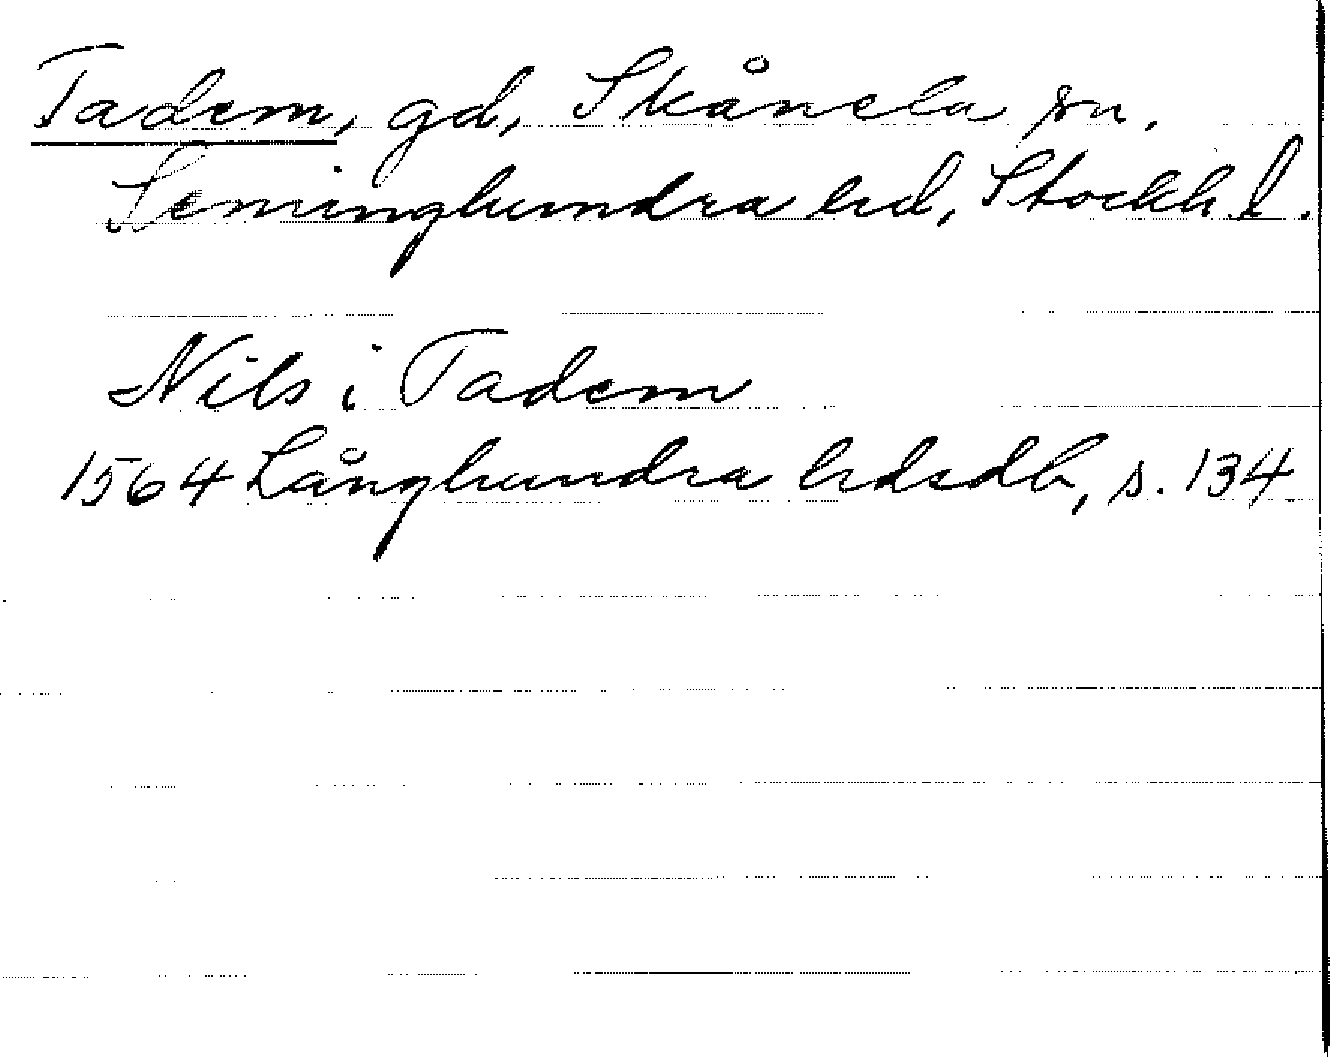 Tadem, gd, Skånela sn,
Seminghundra hd, Stockh. l.
Nils i Tadem
1564 Långhundra hdsdb, s. 134